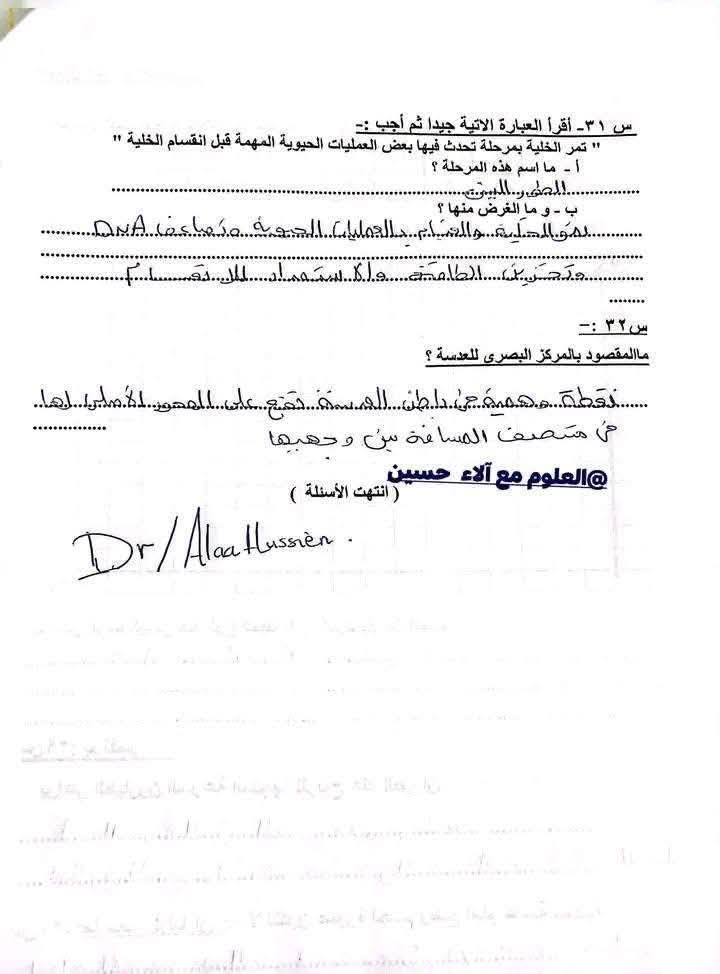 س ٣١- أقرأ العبارة الاتية جيدا ثم أجب :-
" تمر الخلية بمرحلة تحدث فيها بعض العمليات الحيوية المهمة قبل انقسام الخلية "
أ - ما اسم هذه المرحلة ؟
الطور البينى
ب - و ما الغرض منها ؟
نمو الخلية والقيام بالعمليات الحيوية وتضاعف DNA
وتخزين الطاقة والاستعداد للانقسام
س٣٢ :-
ماالمقصود بالمركز البصرى للعدسة ؟
نقطة وهمية فى باطن العدسة تقع على المحور الأصلى لها
فى منتصف المسافة بين وجهيها
@العلوم مع آلاء حسين
( انتهت الأسئلة )
Dr/Alaa Hussien.